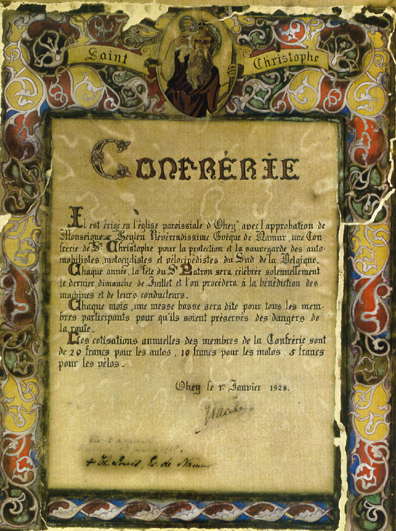 Saint Christophe
CONFRÉRIE
Il est érigé en l'église paroissiale d'Ohey avec l'approbation de
Monseigneur Heylen Révérendissime Evêque de Namur, une Con
frérie de St Christophe pour la protection et la sauvegarde des auto-
mobilistes, motocyclistes et vélocipédistes du Sud de la Belgique.
Chaque année, la fête du St Patron sera célébrée solennellement
le dernier dimanche de Juillet et l'on procédera à la bénédiction des
machines et de leurs conducteurs.
Chaque mois, une messe basse sera dite pour tous les mem-
bres participants pour qu'ils soient préservés des dangers de
la route.
Les cotisations annuelles des membres de la Confrérie sont
de 20 francs pour les autos, 10 francs pour les motos, 5 francs
pour les vélos.
Ohey le 1r Janvier 1928.
+ Th. Louis, Ev. de Namur